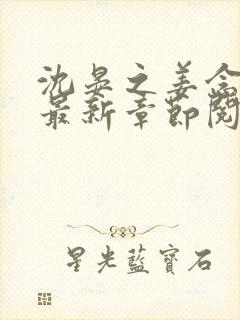 沈晏之姜念
最新章節閱
星光藍寶石